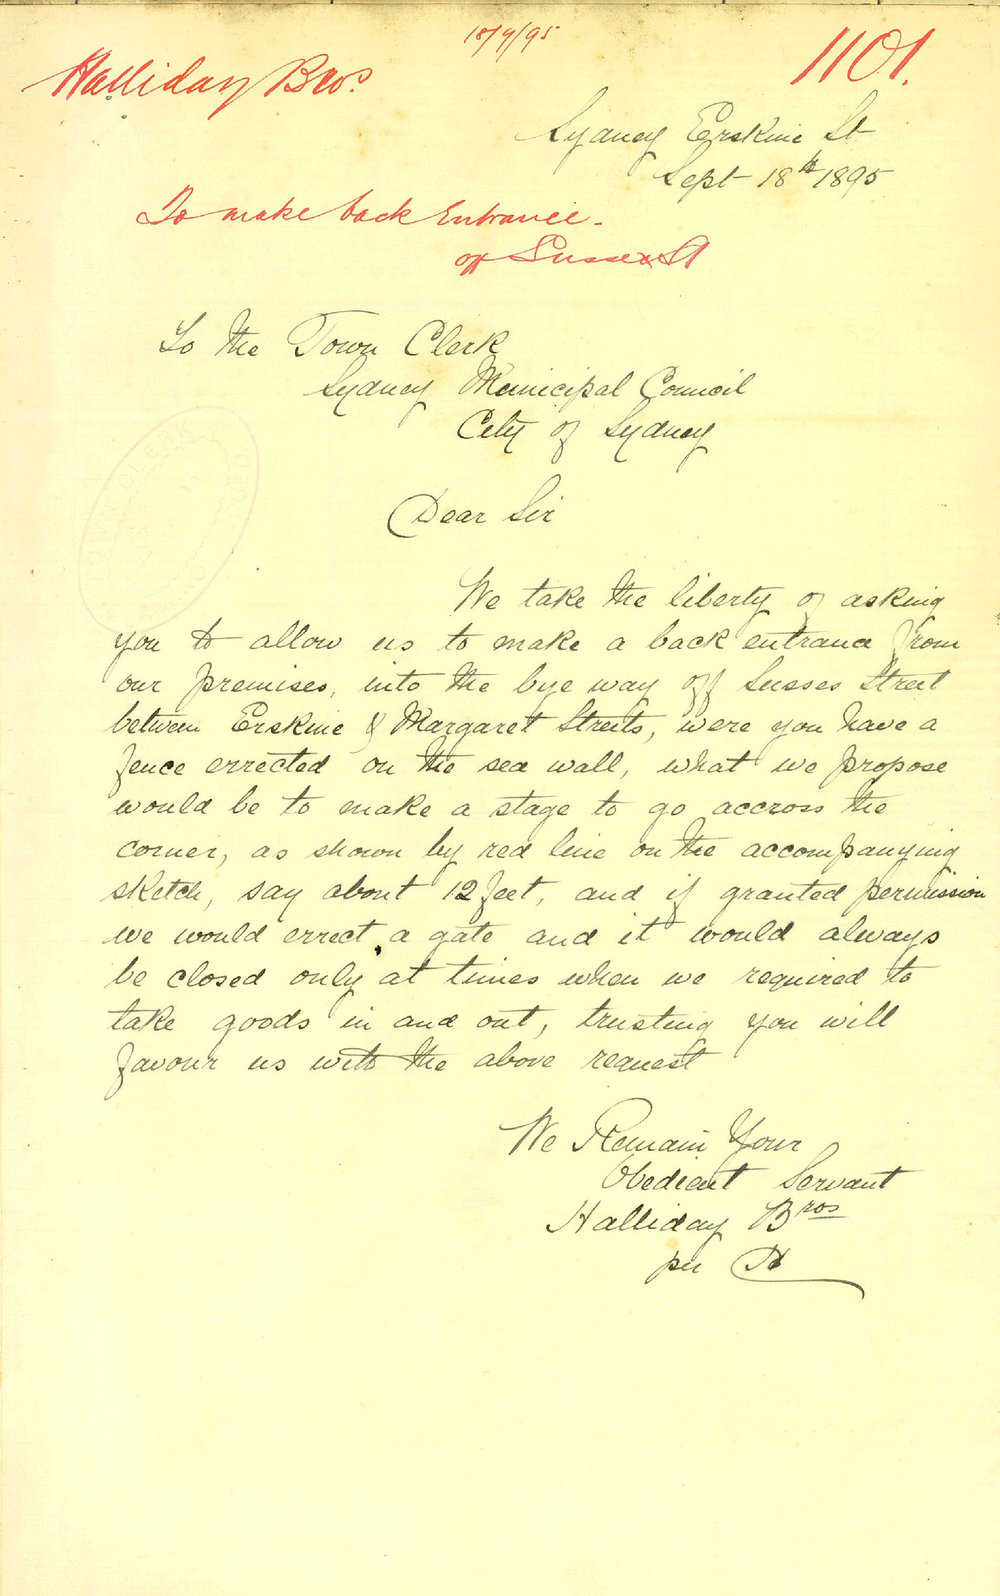 18/9/95
1101.
Halliday Bros.
Sydney Erskine St
Sept 18th 1895
To make back Entrance.
off Sussex St
To the Town Clerk
Sydney Municipal Council
City of Sydney
Dear Sir
We take the liberty of asking
you to allow us to make a back entrance from
our premises, into the bye way off Susses Street
between Erskine & Margaret Streets, were you have a
fence errected on the sea wall, what we propose
would be to make a stage to go accross the
corner, as shown by red line on the accompanying
sketch, say about 12 feet, and if granted permission
we would errect a gate and it would always
be closed only at times when we required to
take goods in and out, trusting you will
favour us with the above request
We Remain Your
Obedient Servant
Halliday Bros
per H
TOWN CLERK